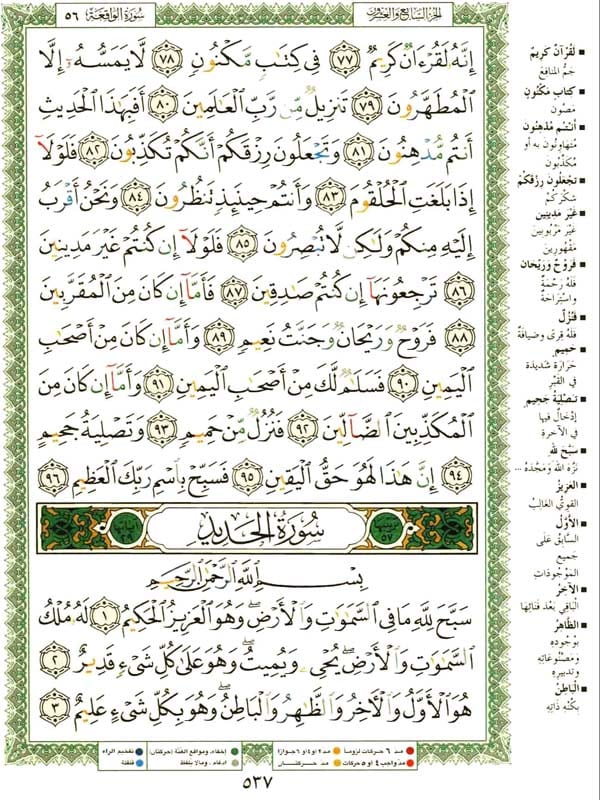 الجزء السابع والعشرون
سورة الواقعة ٥٦
إِنَّهُۥ لَقُرْءَانٌ كَرِيمٌ ٧٧ فِي كِتَٰبٍ مَّكْنُونٍ ٧٨ لَّا يَمَسُّهُۥٓ إِلَّا
ٱلْمُطَهَّرُونَ ٧٩ تَنزِيلٌ مِّن رَّبِّ ٱلْعَٰلَمِينَ ٨٠ أَفَبِهَٰذَا ٱلْحَدِيثِ
أَنتُم مُّدْهِنُونَ ٨١ وَتَجْعَلُونَ رِزْقَكُمْ أَنَّكُمْ تُكَذِّبُونَ ٨٢ فَلَوْلَآ
إِذَا بَلَغَتِ ٱلْحُلْقُومَ ٨٣ وَأَنتُمْ حِينَئِذٍ تَنظُرُونَ ٨٤ وَنَحْنُ أَقْرَبُ
إِلَيْهِ مِنكُمْ وَلَٰكِن لَّا تُبْصِرُونَ ٨٥ فَلَوْلَآ إِن كُنتُمْ غَيْرَ مَدِينِينَ
٨٦ تَرْجِعُونَهَآ إِن كُنتُمْ صَٰدِقِينَ ٨٧ فَأَمَّآ إِن كَانَ مِنَ ٱلْمُقَرَّبِينَ
٨٨ فَرَوْحٌ وَرَيْحَانٌ وَجَنَّتُ نَعِيمٍ ٨٩ وَأَمَّآ إِن كَانَ مِنْ أَصْحَٰبِ
ٱلْيَمِينِ ٩٠ فَسَلَٰمٌ لَّكَ مِنْ أَصْحَٰبِ ٱلْيَمِينِ ٩١ وَأَمَّآ إِن كَانَ مِنَ
ٱلْمُكَذِّبِينَ ٱلضَّآلِّينَ ٩٢ فَنُزُلٌ مِّنْ حَمِيمٍ ٩٣ وَتَصْلِيَةُ جَحِيمٍ
٩٤ إِنَّ هَٰذَا لَهُوَ حَقُّ ٱلْيَقِينِ ٩٥ فَسَبِّحْ بِٱسْمِ رَبِّكَ ٱلْعَظِيمِ ٩٦
ترتيبها ٥٧ سُورَةُ الحَدِيدِ آياتها ٢٩
بِسْمِ ٱللَّهِ ٱلرَّحْمَٰنِ ٱلرَّحِيمِ
سَبَّحَ لِلَّهِ مَا فِي ٱلسَّمَٰوَٰتِ وَٱلْأَرْضِ ۖ وَهُوَ ٱلْعَزِيزُ ٱلْحَكِيمُ ١ لَهُۥ مُلْكُ
ٱلسَّمَٰوَٰتِ وَٱلْأَرْضِ ۖ يُحْيِۦ وَيُمِيتُ ۖ وَهُوَ عَلَىٰ كُلِّ شَيْءٍ قَدِيرٌ ٢
هُوَ ٱلْأَوَّلُ وَٱلْءَاخِرُ وَٱلظَّٰهِرُ وَٱلْبَاطِنُ ۖ وَهُوَ بِكُلِّ شَيْءٍ عَلِيمٌ ٣
لَقُرْآنٌ كَرِيمٌ
جَمُّ المنافِعِ
كِتابٍ مَكْنُونٍ
مَصُونٍ
أنتُم مُدْهِنُون
مُتهاوِنُونَ به أو
مُكَذِّبُون
تَجْعَلُون رِزْقَكُمْ
شكركم
غَيْرَ مَدِينِين
غَيْرَ مَرْبُوبين
مَقْهُورِينَ
فَرَوْحٌ وَرَيْحَان
فَلَهُ رَحْمَةٌ
واسْتِراحَةٌ
فَنُزُلٌ
فَلهُ قِرًى وضيافةٌ
حَمِيم
حَرارةٍ شديدة
في القبْرِ
تَصْلِيَةُ جَحِيم
إدْخَالٌ فيها
في الآخرة
سَبَّحَ لله
نزَّه الله ومجَّده ...
العَزِيزُ
القويُّ الغالِبُ
الأوَّلُ
السَّابِقُ عَلَى
جَميع
الموْجُودَاتِ
الآخِرُ
الباقي بَعْدَ فَنَائِها
الظَّاهِرُ
بِوُجودِه
ومَصْنُوعَاتِه
وتَدبيره
البَاطِنُ
بكُنْهِ ذَاتِه
مد ٦ حركات لزوماً مد ٢ أو ٤ أو ٦ جوازاً إخفاء، ومواقع الغنة (حركتان) تفخيم الراء
مد واجب ٤ أو ٥ حركات مد حركتان إدغام، ومالا يلفظ قلقلة
٥٣٧